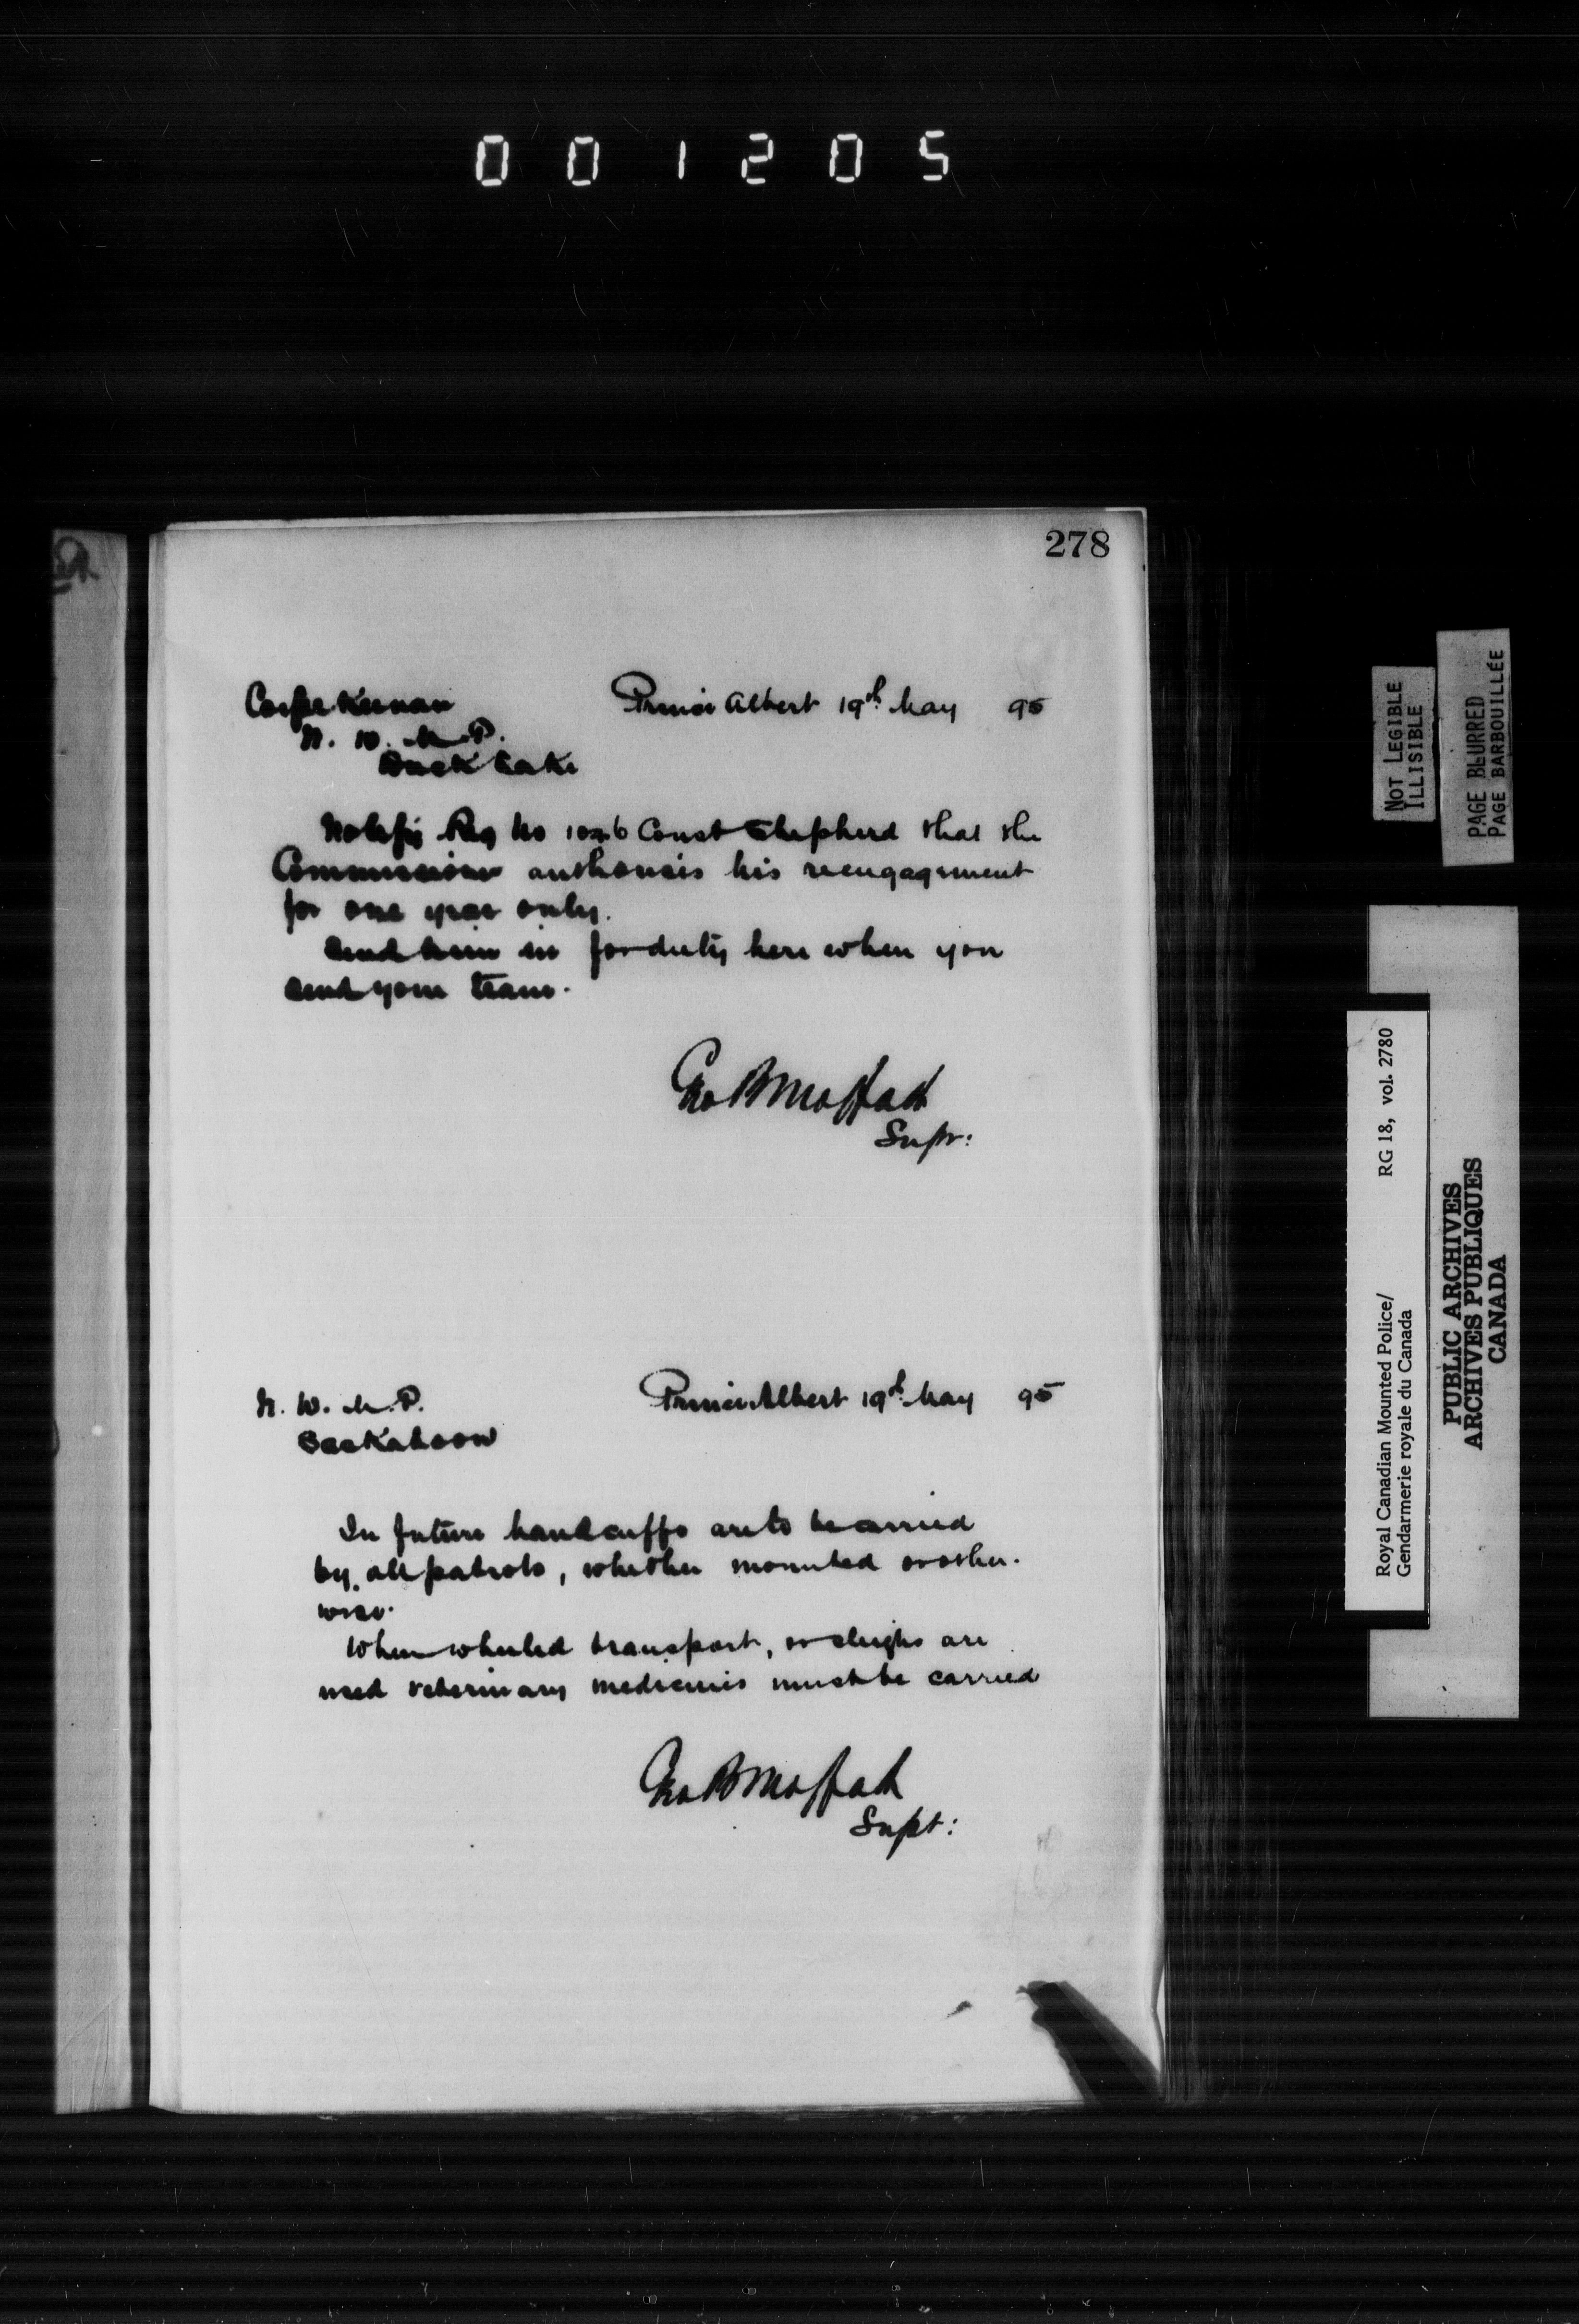 001205
278
Corpl Keenan
Prince Albert 19th May 95
N. W. M. P.
Duck Lake
Notify Reg No Const Shepherd that the
Commissioner authorises his reengagement
for one year only.
Send him in for duty here when you
send your team.
Geo B Moffatt
Supt:
N. W. M. P.
Prince Albert 19th May 95
Saskatoon
In future handcuffs are to be carried
by all patrols, whether mounted or other-
wise.
When wheeled transport, or sleighs are
used veterinary medicines must be carried
Geo B Moffatt
Supt:
NOT LEGIBLE
ILLISIBLE
PAGE BLURRED
PAGE BARBOUILLÉE
Royal Canadian Mounted Police/
Gendarmerie royale du Canada
RG 18, vol. 2780
PUBLIC ARCHIVES
ARCHIVES PUBLIQUES
CANADA